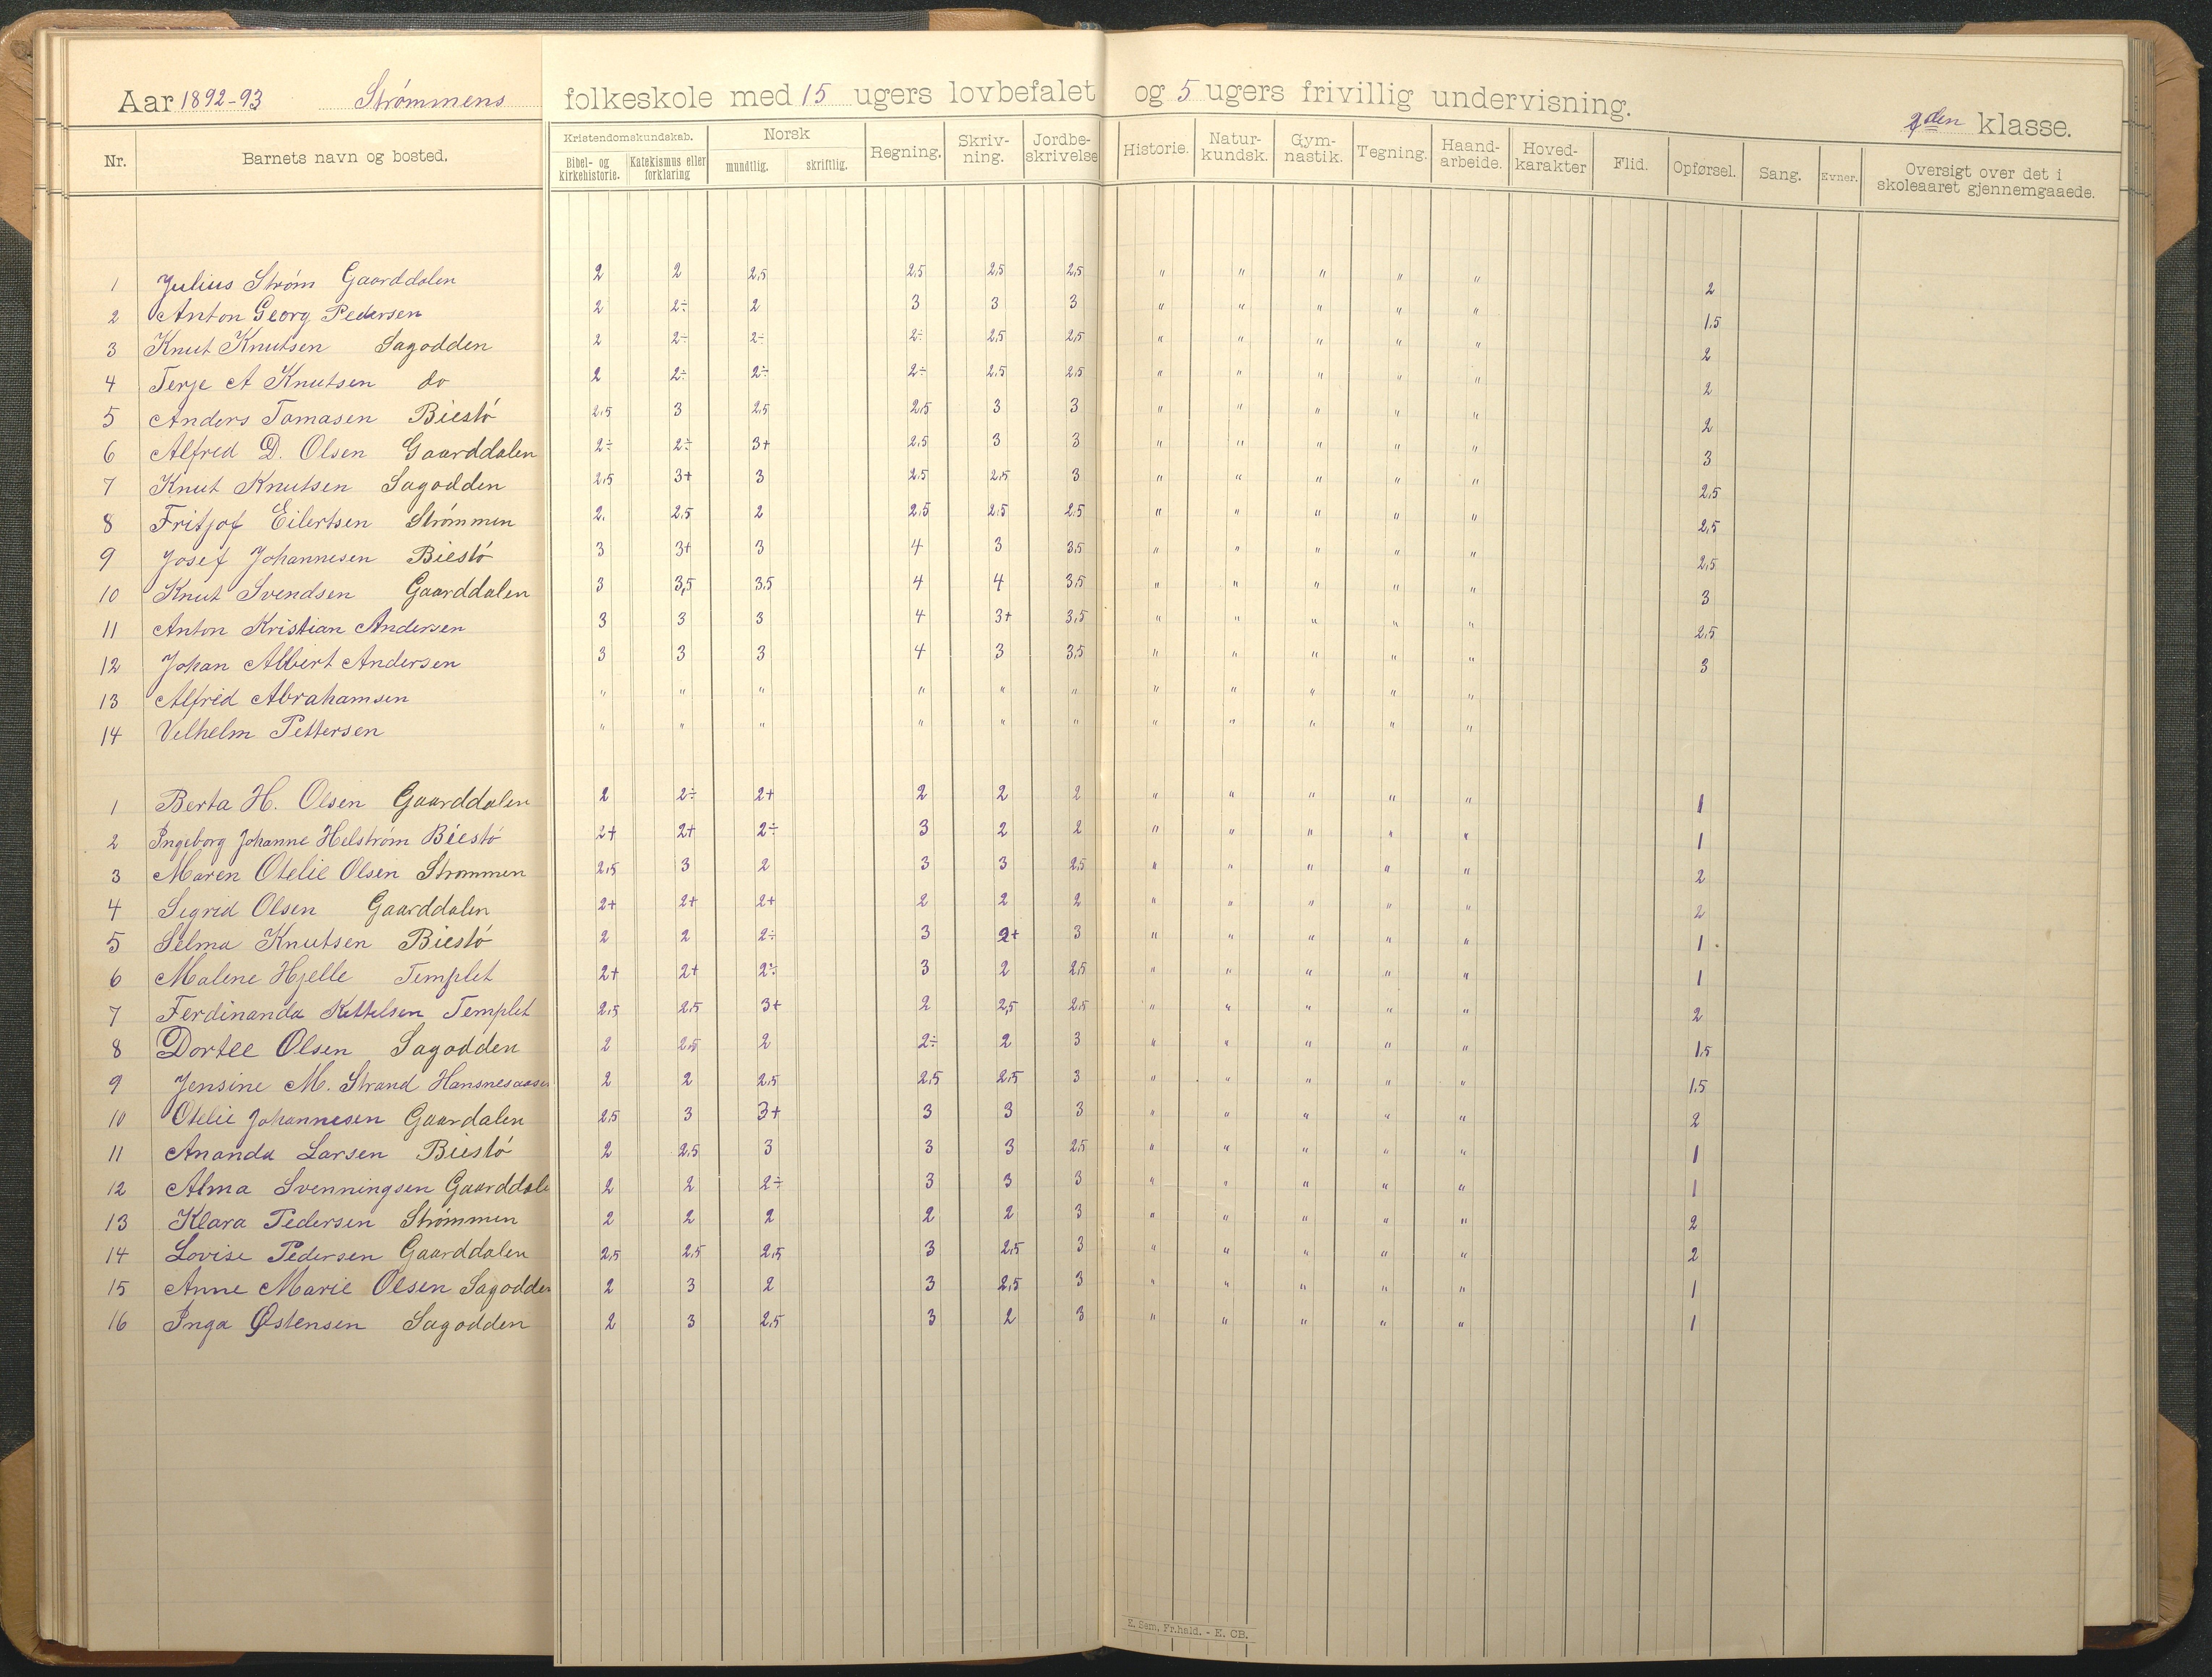 Aar 1892-93 Strømmens folkeskole med 15 ugers lovbefalet og 5 ugers frivillig undervisning. 2den klasse.
Nr. Barnets navn og bosted. Kristendomskundskab. Bibel- og kirkehistorie. Katekismus eller forklaring Norsk mundtlig. skriftlig. Regning. Skriv-ning. Jordbe-skrivelse Historie. Natur-kundsk. Gym-nastik. Tegning. Haand-arbeide. Hoved-karakter Flid. Opførsel. Sang. Evner. Oversigt over det i skoleaaret gjennemgaaede.
1 Julius Strøm Gaarddalen 2 2 2,5 2,5 2,5 2,5 " " " " " 2
2 Anton Georg Pedersen 2 2÷ 2 3 3 3 " " " " " 1,5
3 Knut Knutsen Sagodden 2 2÷ 2÷ 2÷ 2,5 2,5 " " " " " 2
4 Terje A Knutsen do 2 2÷ 2÷ 2÷ 2,5 2,5 " " " " " 2
5 Anders Tomasen Biestø 2,5 3 2,5 2,5 3 3 " " " " " 2
6 Alfred D. Olsen Gaarddalen 2÷ 2÷ 3+ 2,5 3 3 " " " " " 3
7 Knut Knutsen Sagodden 2,5 3+ 3 2,5 2,5 3 " " " " " 2,5
8 Fritjof Eilertsen Strømmen 2. 2,5 2 2,5 2,5 2,5 " " " " " 2,5
9 Josef Johannesen Biestø 3 3+ 3 4 3 3,5 " " " " " 2,5
10 Knut Svendsen Gaarddalen 3 3,5 3,5 4 4 3,5 " " " " " 3
11 Anton Kristian Andersen 3 3 3 4 3+ 3,5 " " " " " 2,5
12 Johan Albert Andersen 3 3 3 4 3 3,5 " " " " " 3
13 Alfred Abrahamsen " " " " " " " " " " "
14 Velhelm Pettersen " " " " " " " " " " "
1 Berta H. Olsen Gaarddalen 2 2÷ 2+ 2 2 2 " " " " " 1
2 Ingeborg Johanne Helstrøm Biestø 2+ 2+ 2÷ 3 2 2 " " " " " 1
3 Maren Otelie Olsen Strømmen 2,5 3 2 3 3 2,5 " " " " " 2
4 Sigrid Olsen Gaarddalen 2+ 2+ 2+ 2 2 2 " " " " " 2
5 Selma Knutsen Biestø 2 2 2÷ 3 2+ 3 " " " " " 1
6 Malene Hjelle Templet 2+ 2+ 2÷ 3 2 2,5 " " " " " 1
7 Ferdinanda Kettelsen Templet 2,5 2,5 3+ 2 2,5 2,5 " " " " " 2
8 Dortee Olsen Sagodden 2 2,5 2 2÷ 2 3 " " " " " 1,5
9 Jensine M. Strand Hansnesaasen 2 2 2,5 2,5 2,5 3 " " " " " 1,5
10 Otelie Johannesen Gaardalen 2,5 3 3+ 3 3 3 " " " " " 2
11 Ananda Larsen Biestø 2 2,5 3 3 3 2,5 " " " " " 1
12 Alma Svenningsen Gaarddale 2 2 2÷ 3 3 3 " " " " " 1
13 Klara Pedersen Strømmen 2 2 2 2 2 3 " " " " " 2
14 Lovise Pedersen Gaarddalen 2,5 2,5 2,5 3 2,5 3 " " " " " 2
15 Anne Marie Olsen Sagodden 2 3 2 3 2,5 3 " " " " " 1
16 Inga Østensen Sagodden 2 3 2,5 3 2 3 " " " " " 1
E. Sem, Fr.hald. - E. CB.